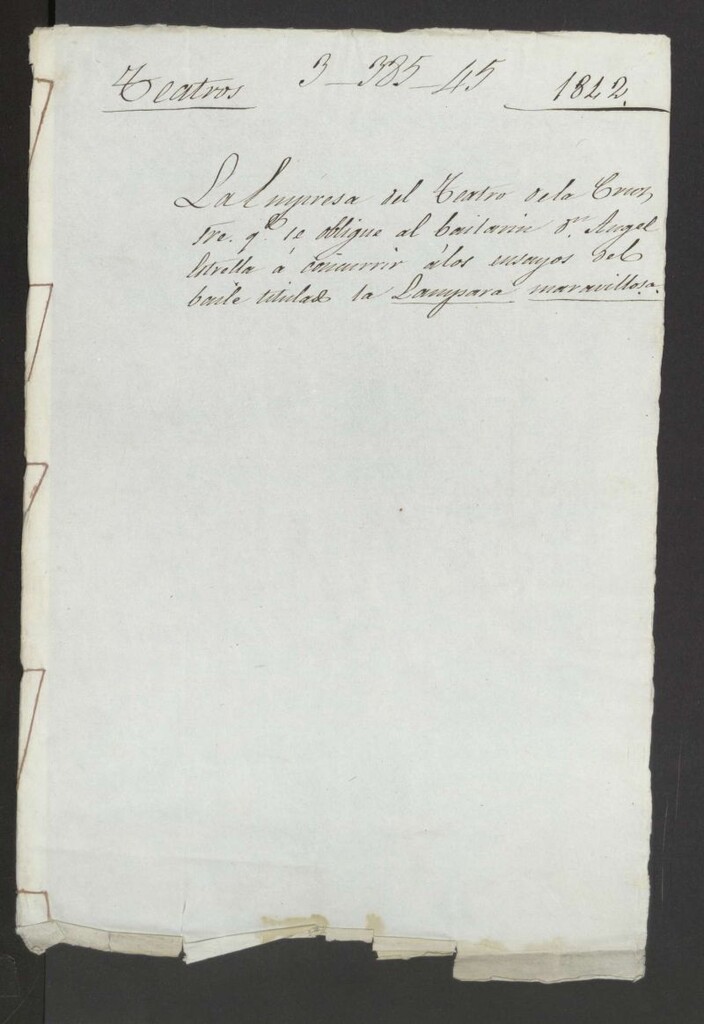 Teatros 3-385-45 1842.
La Empresa del Teatro dela Cruz,
sre. qe. se obligue al bailarin Dn. Angel
Estrella á concurrir álos ensayos del
baile titulado la Lampara maravillosa.